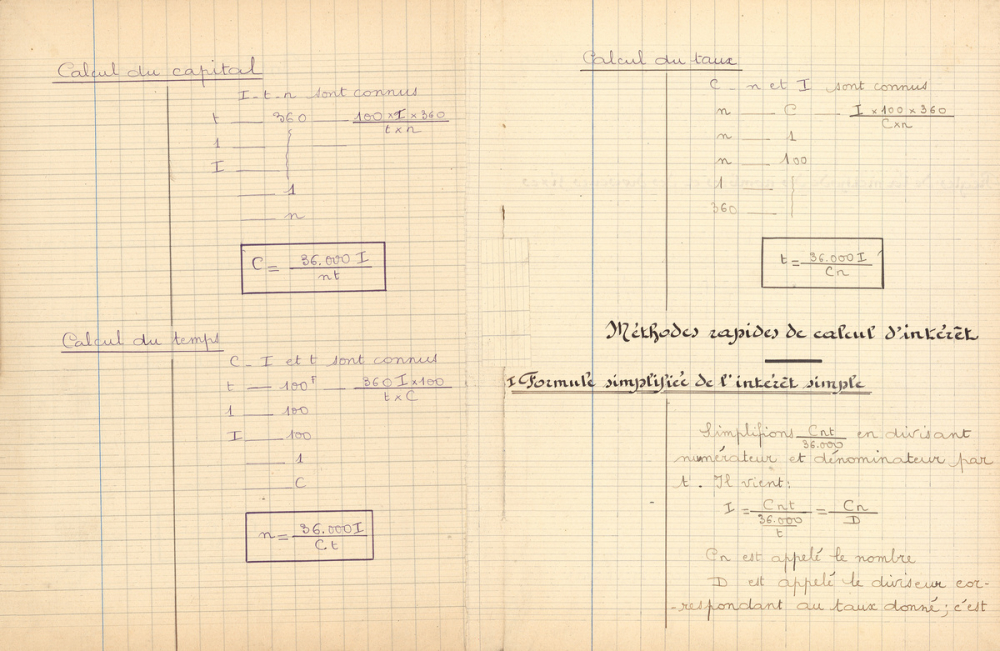 Calcul du capital
I_t_n sont connus
t ___ 360 ___ 100 x I x 360 / t x n
1 ___ ___
I ___
___ 1
___ n
C = 36.000 I / nt
Calcul du temps
C_I et t sont connus
t ___ 100F ___ 360 I x 100 / t x C
1 ___ 100
I ___ 100
___ 1
___ C
n = 36.000 I / C t
Calcul du taux
C_ n et I sont connus
n ___ C ___ I x 100 x 360 / C x n
n ___ 1
n ___ 100
1 ___
360 ___
t = 36.000 I / Cn
Méthodes rapides de calcul d'intérêt
I. Formule simplifiée de l'intérêt simple
Simplifions Cnt / 36.000 en divisant
numérateur et dénominateur par
t. Il vient:
I = Cnt / 36.000 / t = Cn / D
Cn est appelé le nombre
D est appelé le diviseur cor-
-respondant au taux donné; c'est